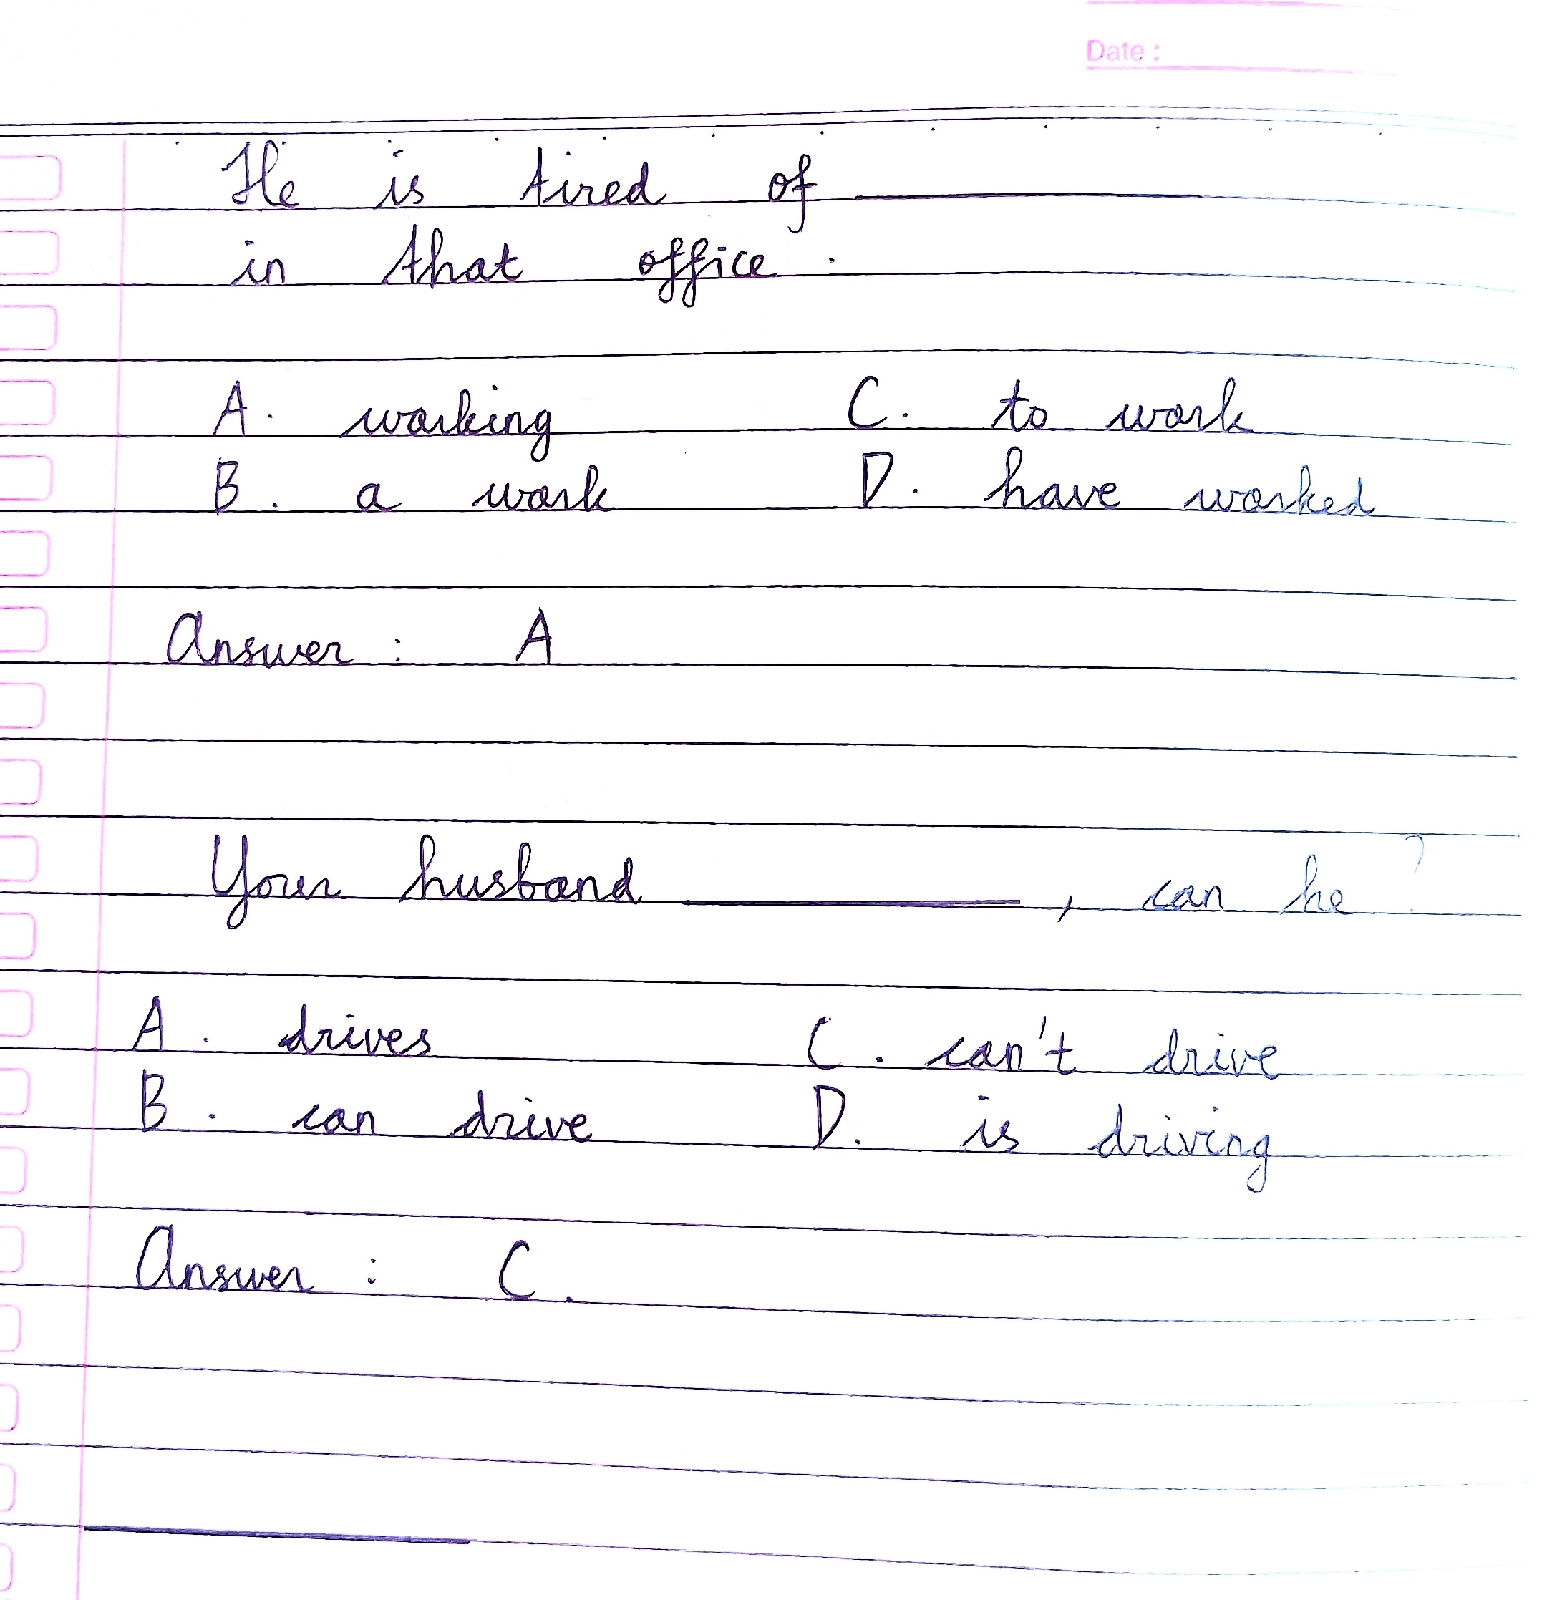 Date :
He is tired of
in that office.
A. working C. to work
B. a work D. have worked
Answer : A
Your husband , can he ?
A. drives C. can't drive
B. can drive D. is driving
Answer : C.